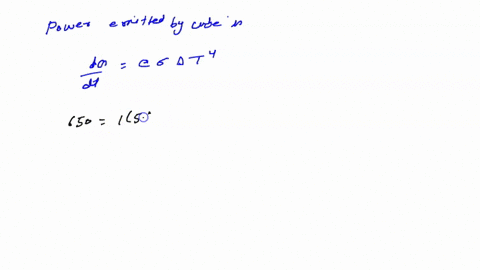 Power emitted by cube is
dQ/dt = e σ A T⁴
650 = 1(5